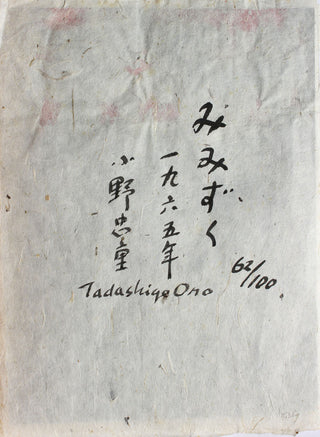 みみずく
一九六五年
小野忠重
Tadashige Ono
62/100